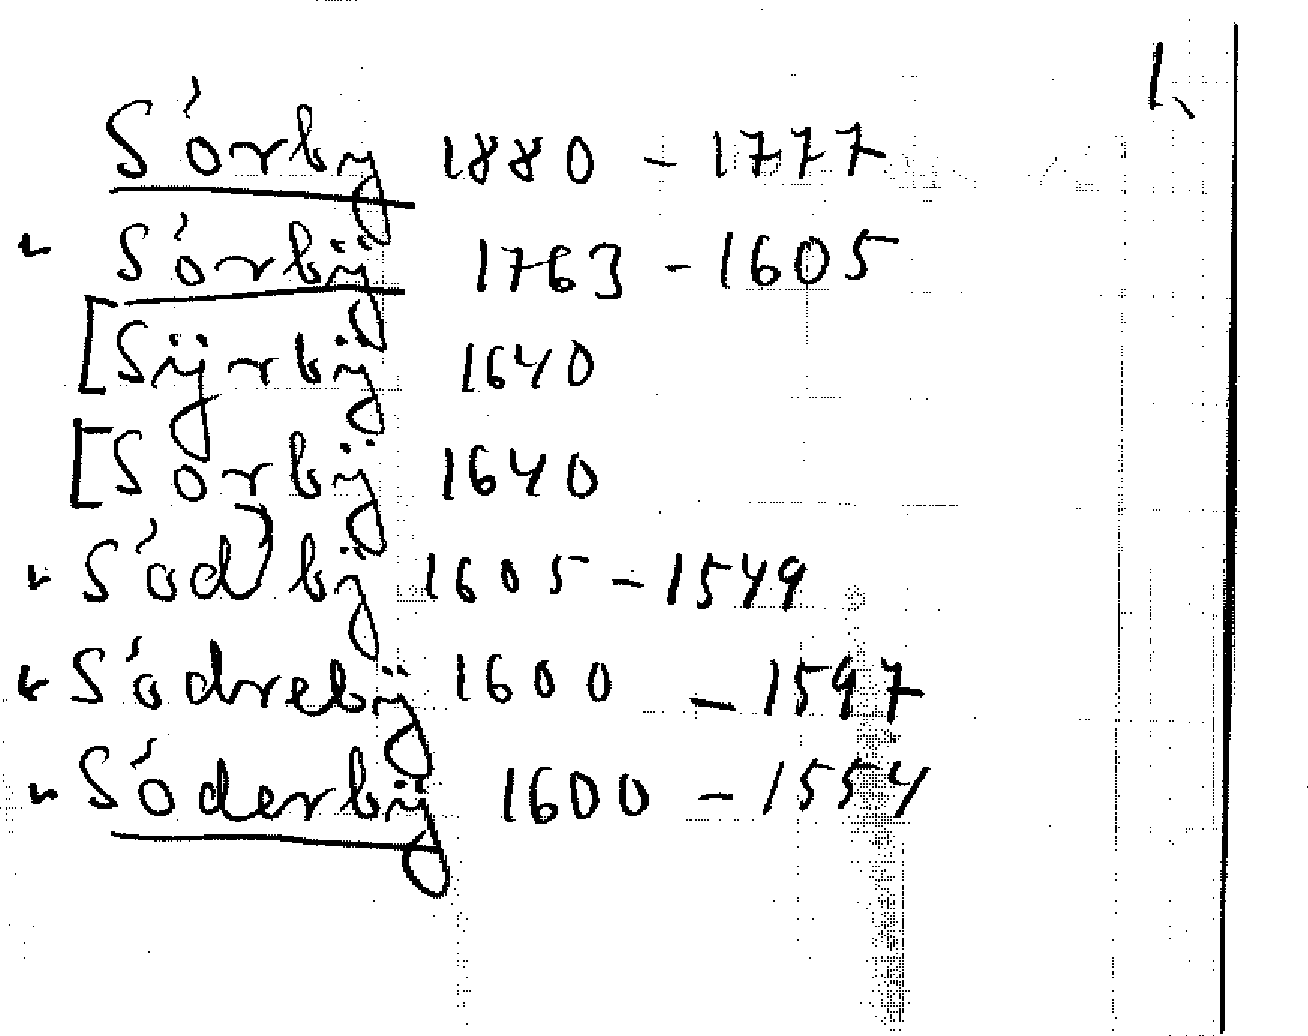 1.
Sörby 1880 – 1777
" Sörbÿ 1763 – 1605
[Sÿrbÿ 1640
[Sorbÿ 1640
" Söd)bÿ 1605 – 1549
" Södrebÿ 1600 – 1597
" Söderbÿ 1600 – 1554